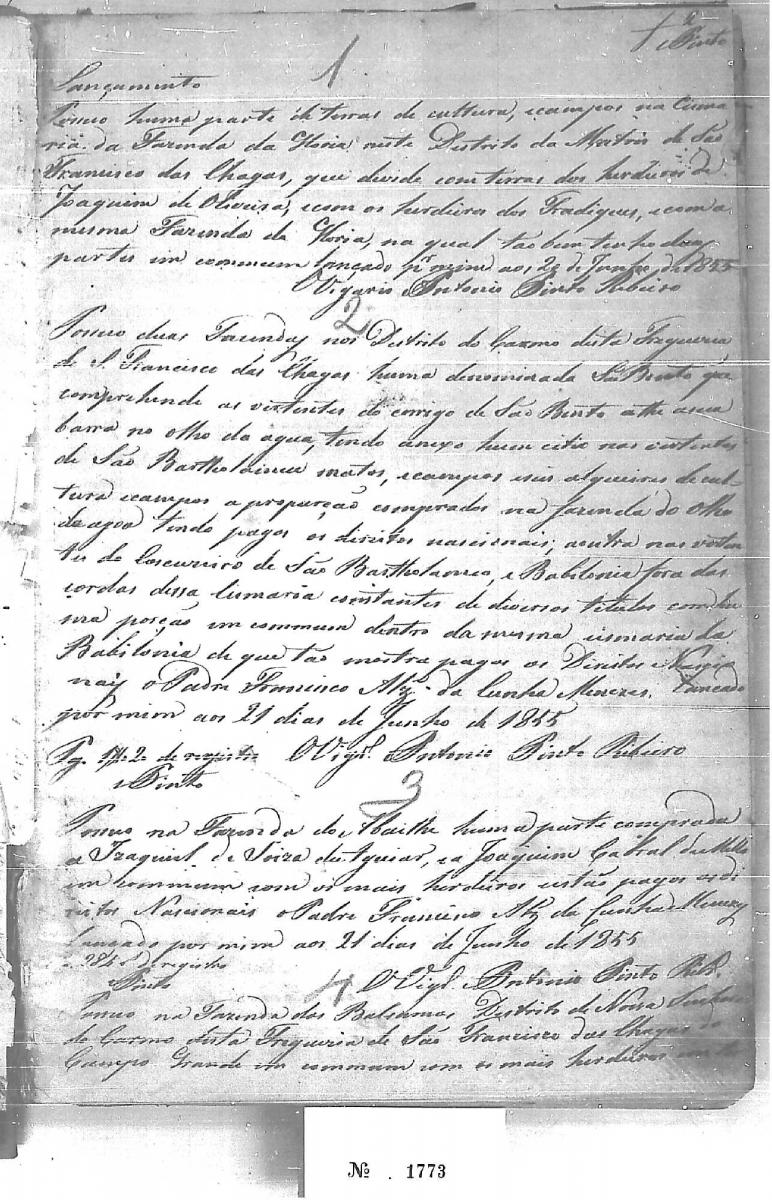 1
Pinto
Lançamento
Possuo huma parte de terras de cultura, e campos na Cisma
ria da Fazenda da Gloria neste Distrito da Matris de São
Francisco das Chagas, que devide com terras dos herdeiros de
Joaquim de Oliveira, e com os herdeiros dos Fradiques, e com a
mesma Fazenda da Gloria, na qual tão bem tenho duas
partes em commum Lançado pr mim aos de Junho de 1855
Vigario Antonio Pinto Ribeiro
2
Possuo duas Fazendas nos Distrito do Carmo desta Freguezia
de S. Francisco das Chagas huma denominada São Bento que
comprehende as vertentes do corrigo de São Bento athe a sua
barra no olho da agua, tendo anexo hum citio nas vertentes
de São Bartholomeu matos, e campos e seis alqueires de cul-
tura e campos a proporção comprados na fazenda do Olho
de agoa tendo pagos os direitos nascionais; a outra nas verten
tes do de São Bartholomeo, e Babilonia fora das
cordas dessa sismaria constantes de diversos titulos com hu
ma porção em commum dentro da mesma sismaria da
Babilonia de que tão mostra pagos os Direitos Nascio
nais o Padre Francisco Alz. da Cunha Menezes. Lancado
por mim aos 21 dias de Junho de 1855
Pg. de registro O Vigr.º Antonio Pinto Ribeiro
Pinto
3
Possuo na Fazenda do Abaithe huma parte comprada
a Izaquiel de Soiza de Aguiar, e a Joaquim Cabral de Mello
em commum com os mais herdeiros e estão pagos os di
reitos Nascionais o Padre Francisco Alz da Cunha Menezes
Lançado por mim aos 21 dias de Junho de 1855
de registro
Pinto O Vigr.º Antonio Pinto Ribr.
4
Possuo na Fazenda dos Balsamos Distrito de Nossa Senhora
do Carmo desta Freguezia de São Francisco das Chagas do
Campo Grande em commum com os mais herdeiros
Nº . 1773